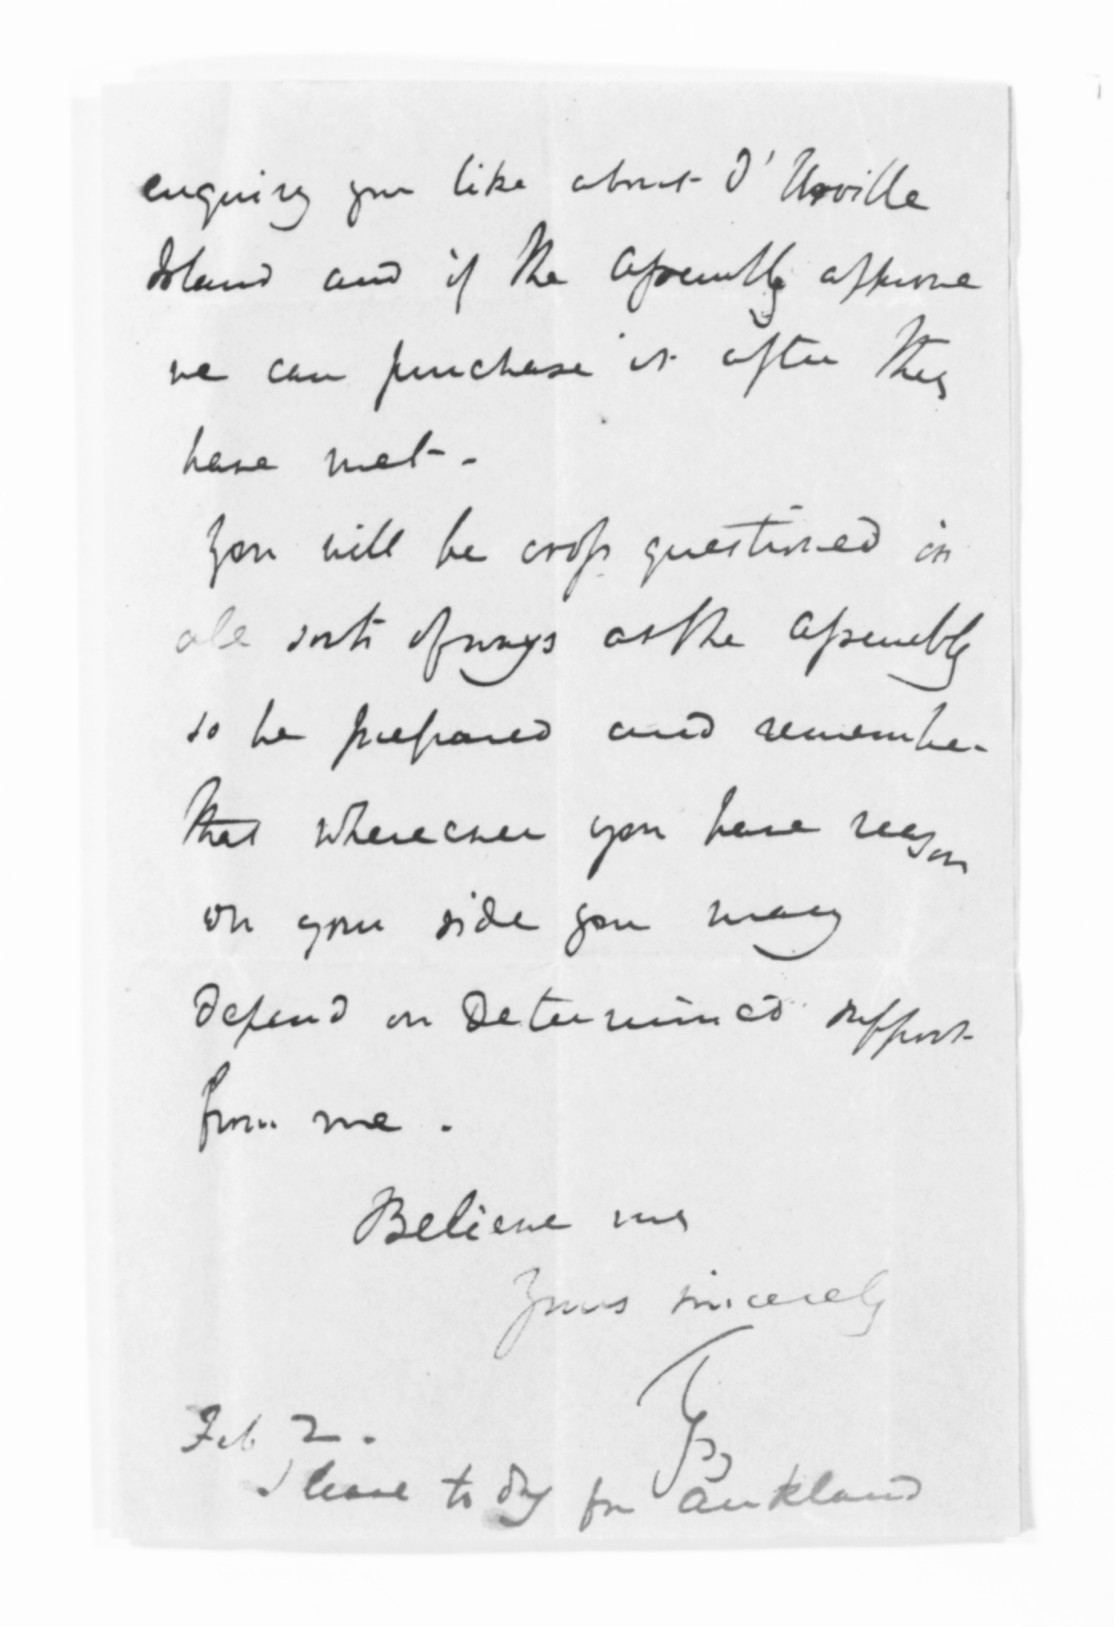 enquiry you like about D'Urville
Island and if the Assembly approve
we can purchase it after they
have met -
You will be cross questioned in
all sorts of ways at the Assembly
so be prepared and remember
that whereever you have reason
on your side you may
depend on determined support
from me .
Believe me
Yours sincerely
Feb 2 .
I leave to day for Auckland